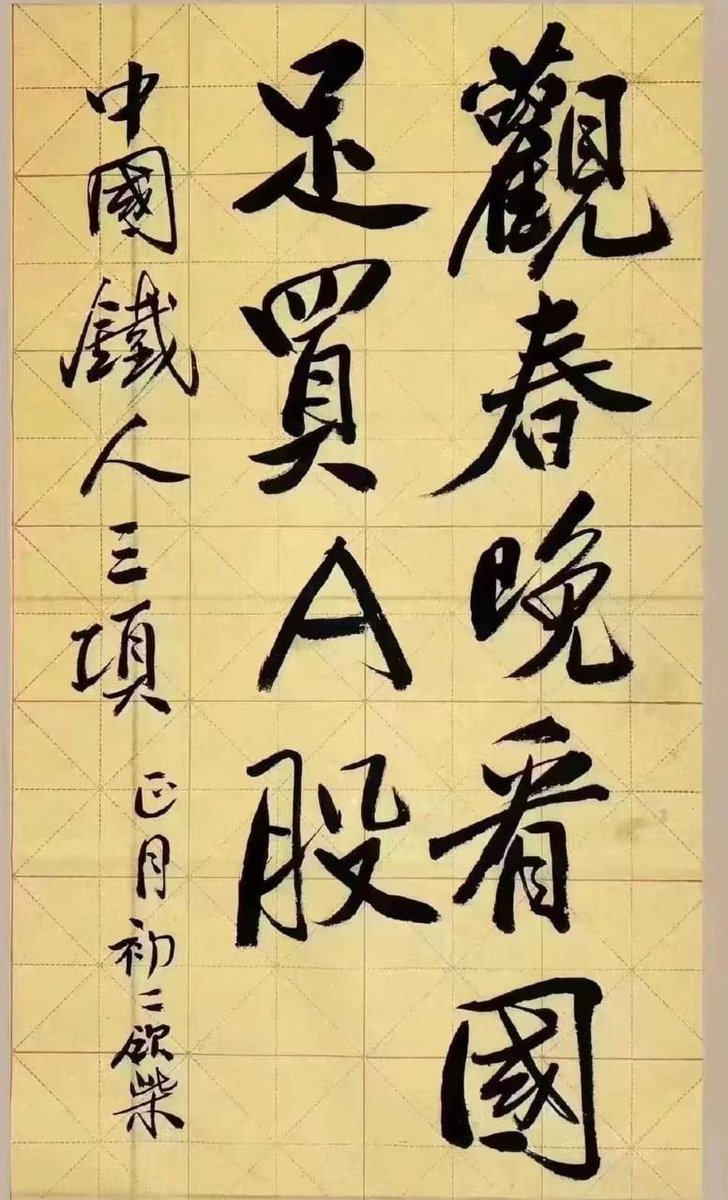 觀春晚看國
足買A股
中國鐵人三項
正月初二飲柴